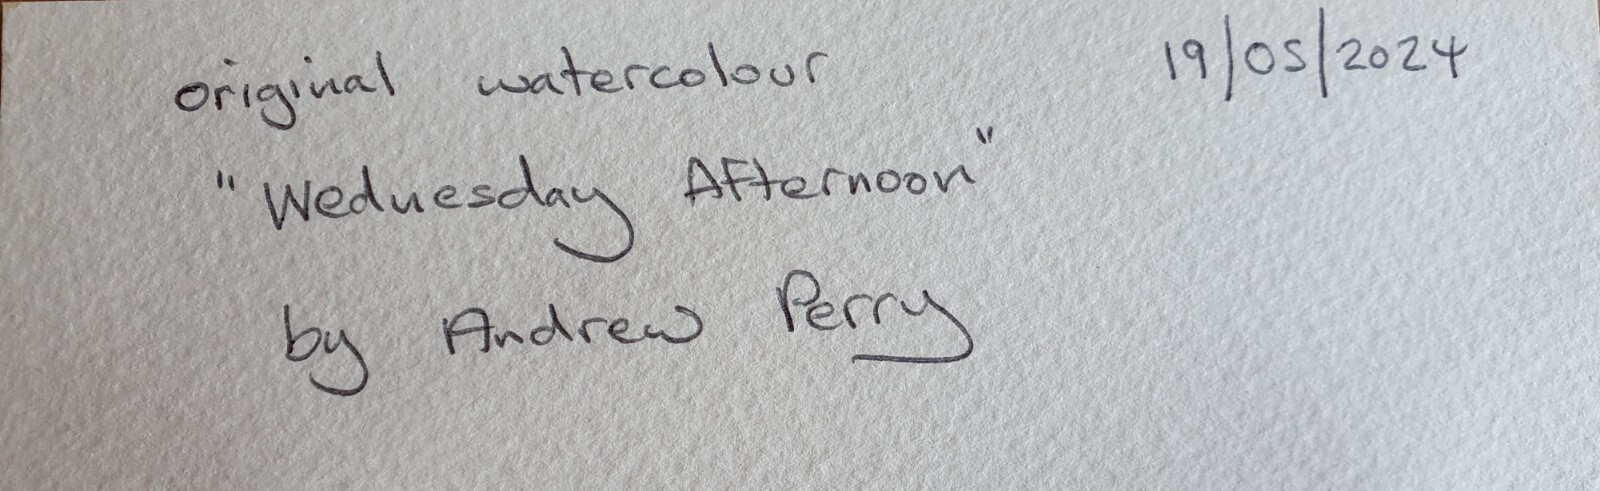 original watercolour 19/05/2024
"Wednesday Afternoon"
by Andrew Perry